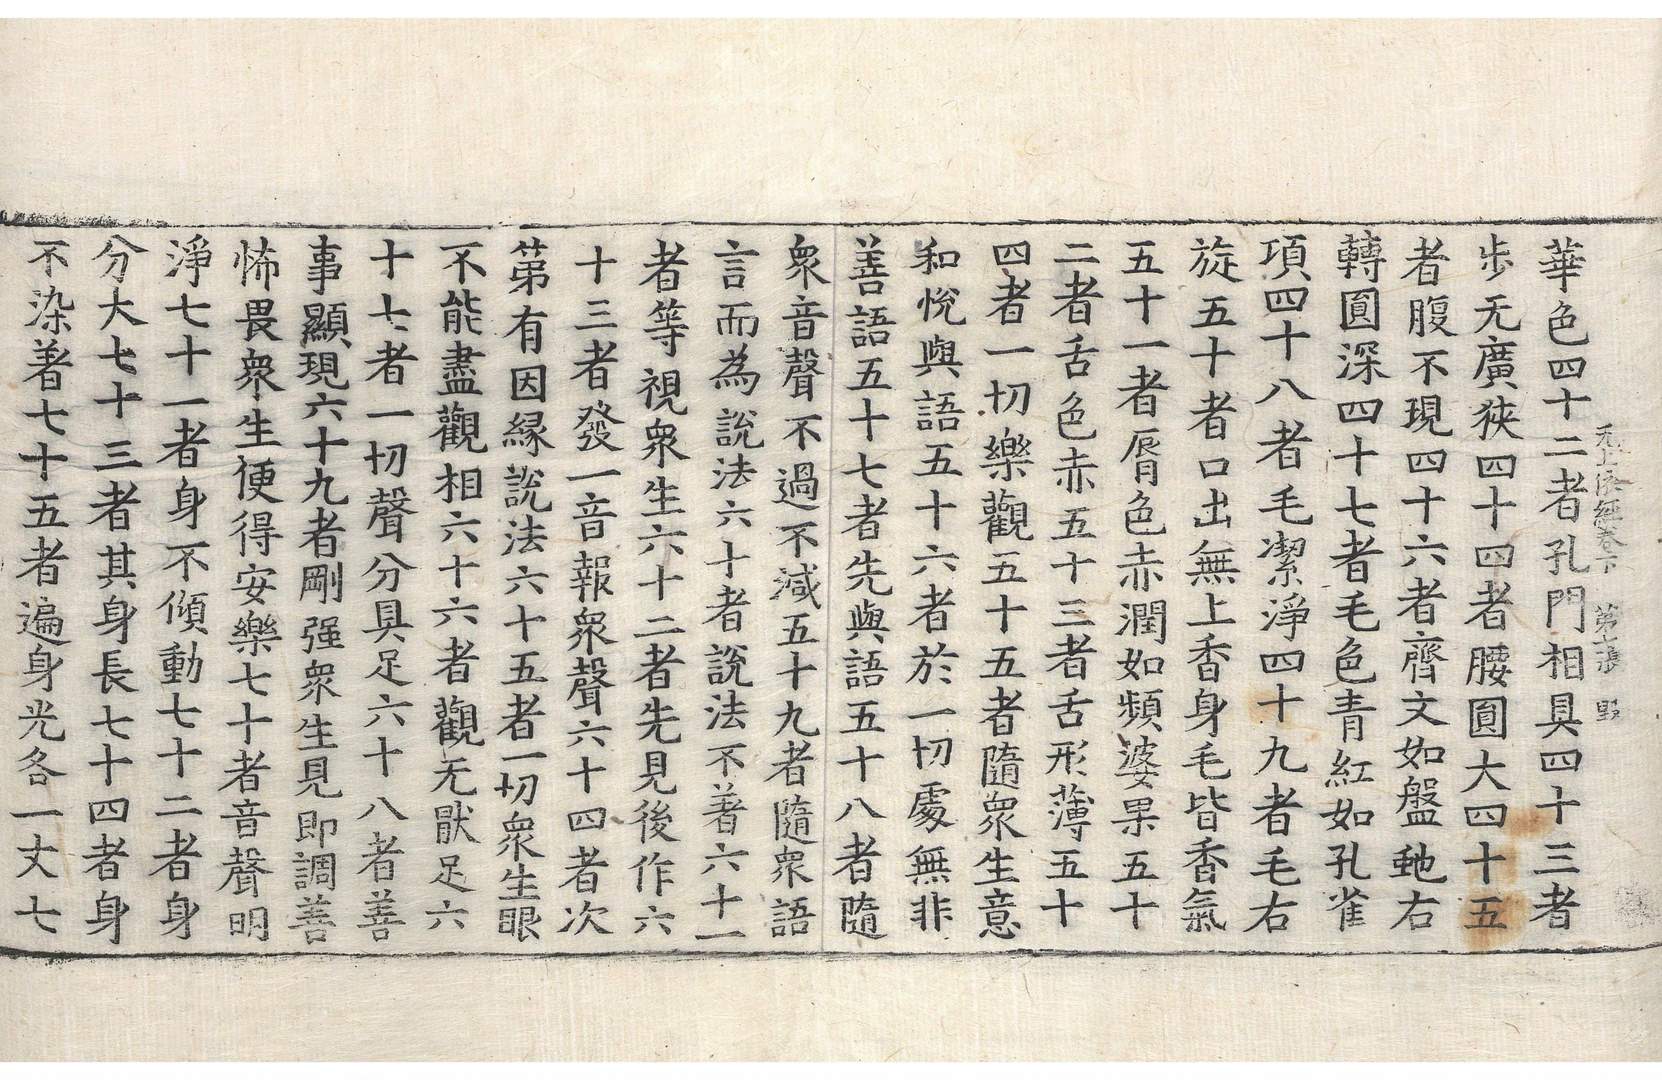 无上依經卷下 第七張 野
華色四十二者孔門相具四十三者
步无廣狹四十四者腰圓大四十五
者腹不現四十六者齎文如盤虵右
轉圓深四十七者毛色青紅如孔雀
項四十八者毛潔淨四十九者毛右
旋五十者口出無上香身毛皆香氣
五十一者脣色赤潤如頻婆果五十
二者舌色赤五十三者舌形薄五十
四者一切樂觀五十五者隨衆生意
和悅與語五十六者於一切處無非
善語五十七者先與語五十八者隨
衆音聲不過不減五十九者隨衆語
言而為說法六十者說法不著六十一
者等視衆生六十二者先見後作六
十三者發一音報衆聲六十四者次
第有因緣說法六十五者一切衆生眼
不能盡觀相六十六者觀无猒足六
十七者一切聲分具足六十八者善
事顯現六十九者剛强衆生見即調善
怖畏衆生便得安樂七十者音聲明
淨七十一者身不傾動七十二者身
分大七十三者其身長七十四者身
不染著七十五者遍身光各一丈七